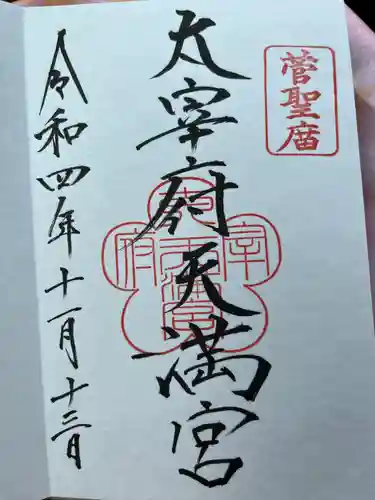 菅聖庿
太宰府天満宮
令和四年十一月十三日